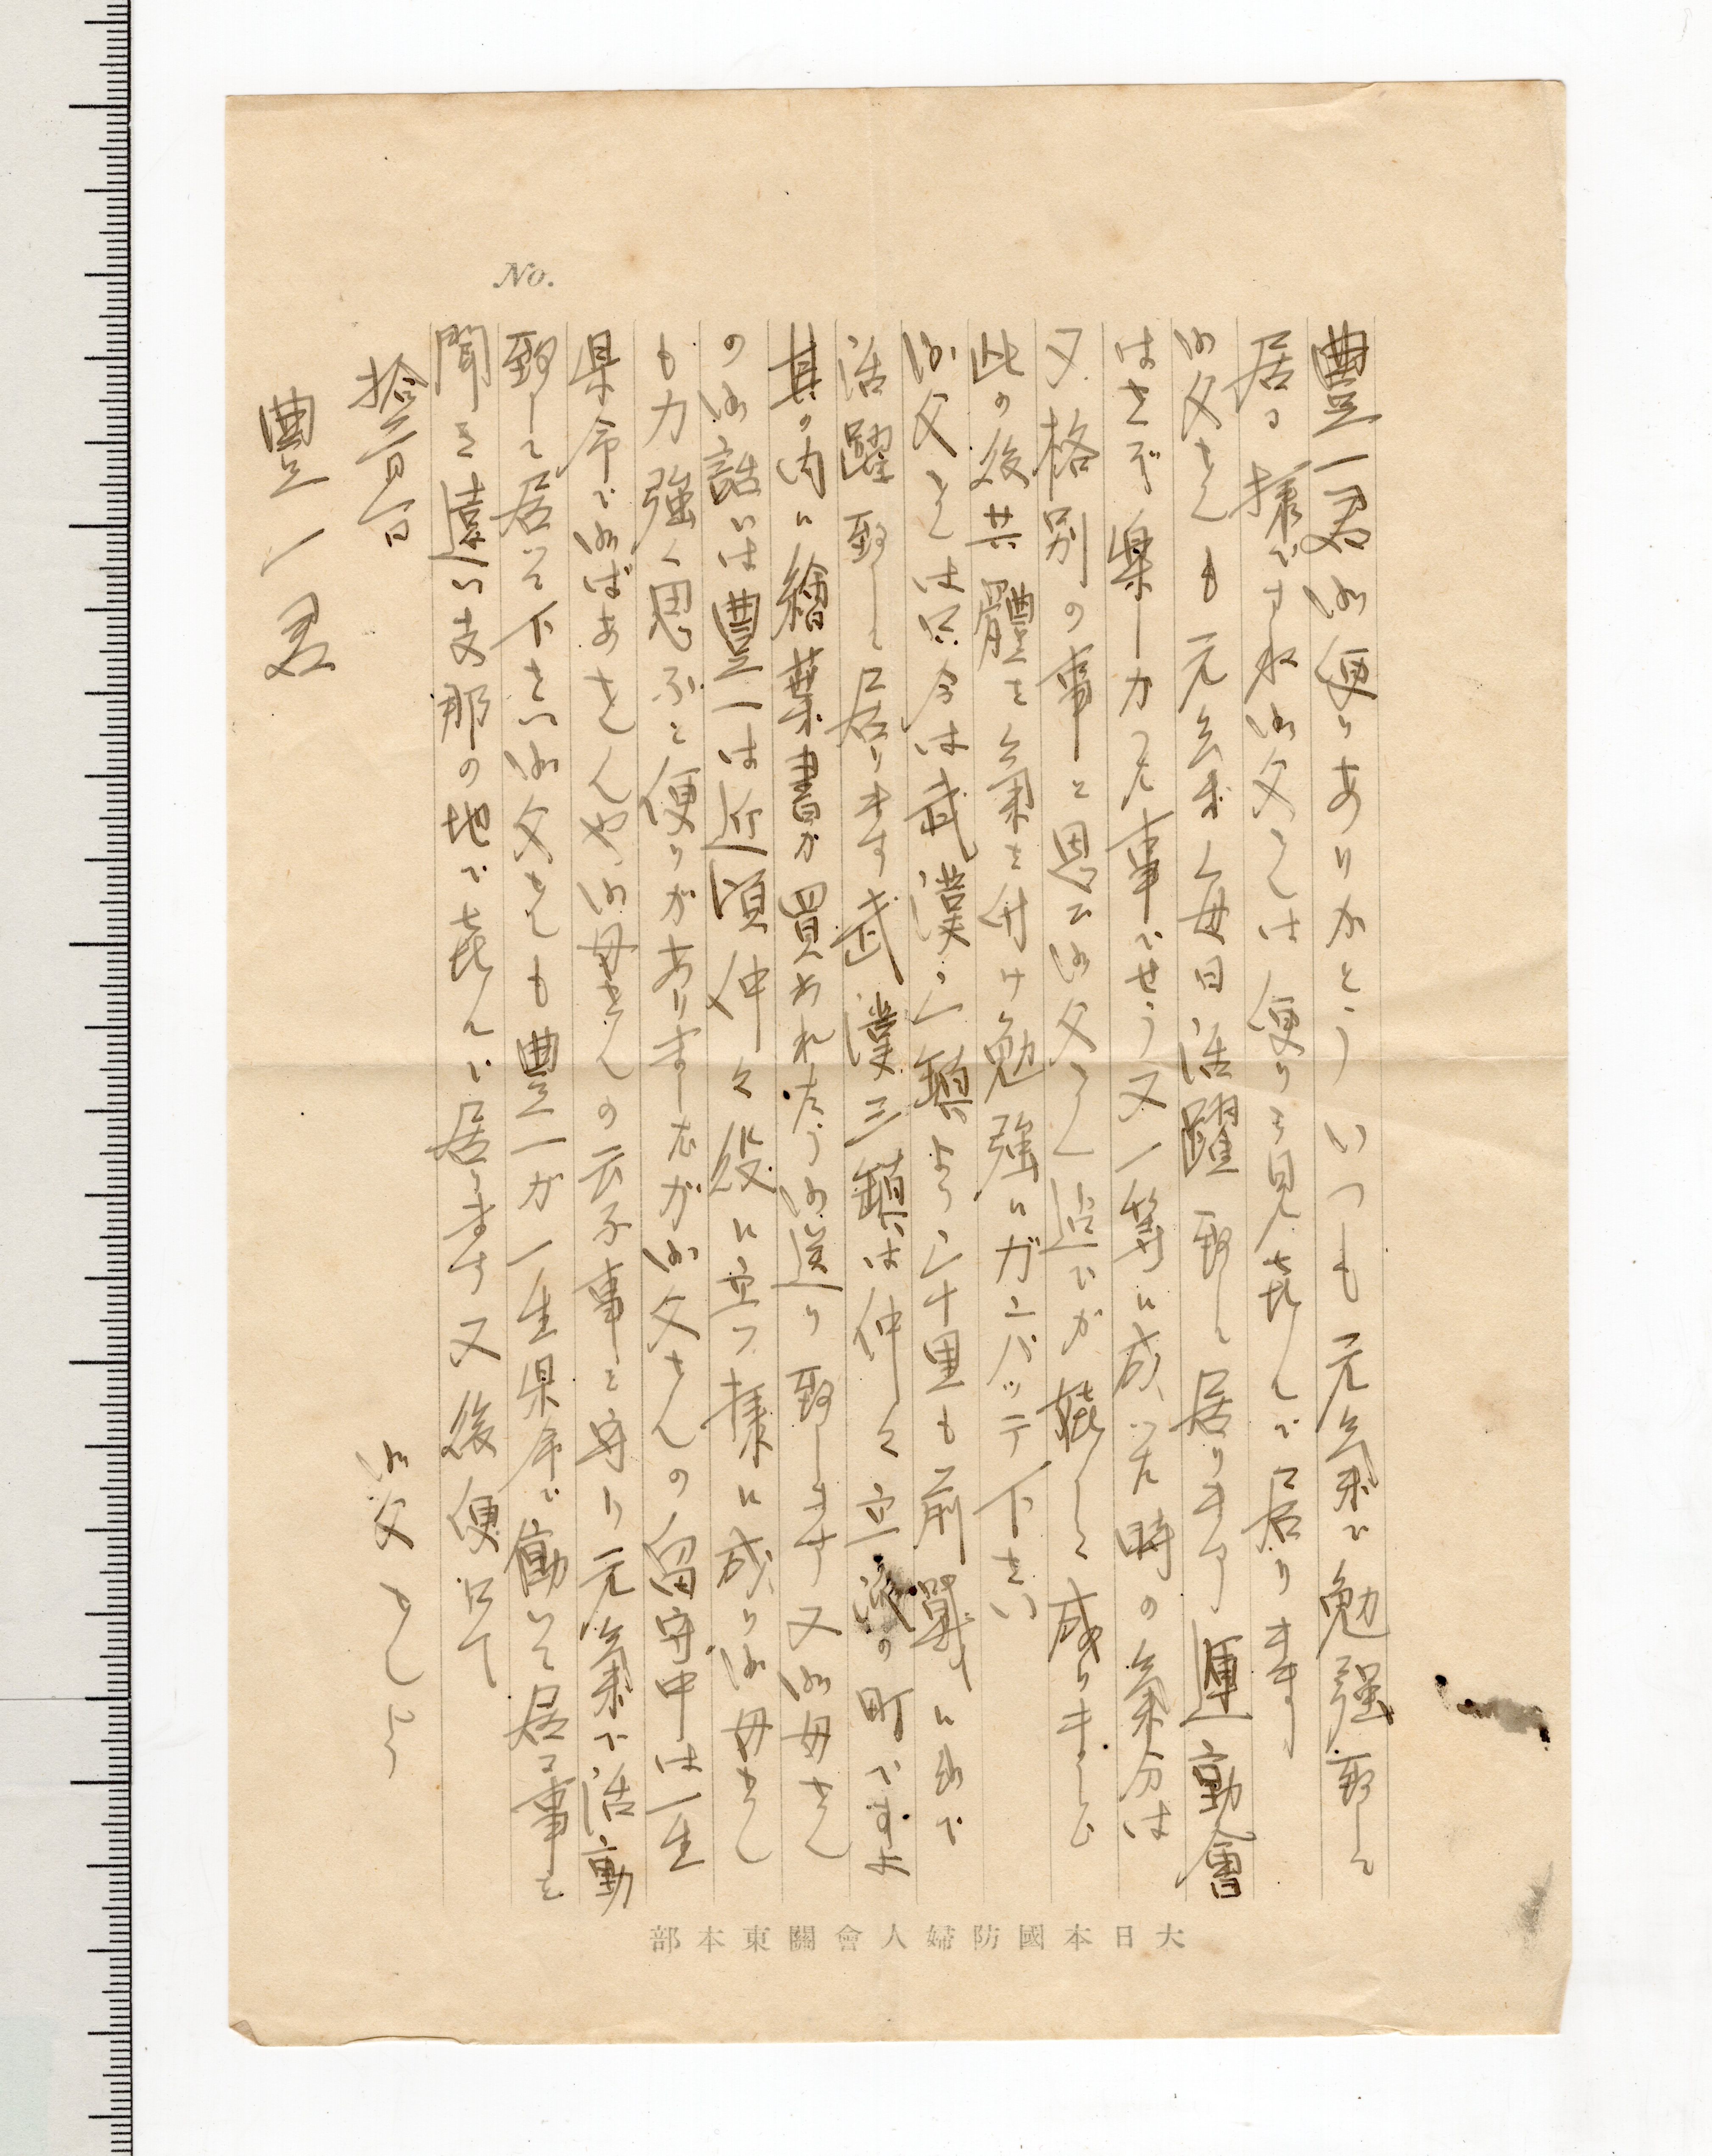 No.
豊一君御便りありがとういつも元気で勉強致して
居る様ですね御父さんは便りを見喜んで居ります
御父さんも元気で毎日活躍致して居ります運動會
はさぞ楽しかった事でせう又一等に成った時の気分は
又格別の事と思ひ御父さん迄でが嬉しく成りました
此の後共體を気を付け勉強にガンバッテ下さい
御父さんは只今は武漢三鎮より三十里も前戦に出て
活躍致して居ります武漢三鎮は仲々立派の町ですよ
其の内に繪葉書が買われたら御送り致します又御母さん
の御話には豊一は近頃仲々役に立つ様に成り御母さん
も力強く思ふと便りがありましたが御父さんの留守中は一生
県命で御ばあさんや御母さんの云ふ事を守り元気で活動
致して居って下さい御父さんも豊一が一生県命で働いて居る事を
聞き遠い支那の地で喜んで居ります又後便にて
拾一月
御父さんより
豊一君
大日本國防婦人會關東本部